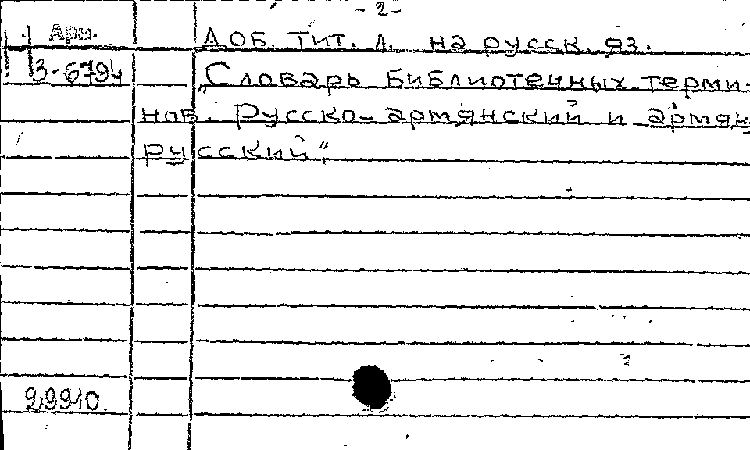 - 2 -
Арм.
Доб. тит. л. на русск. яз.
3-6794
„Словарь библиотечных терми-
нов. Русско-армянский и армян
русский“.
29910